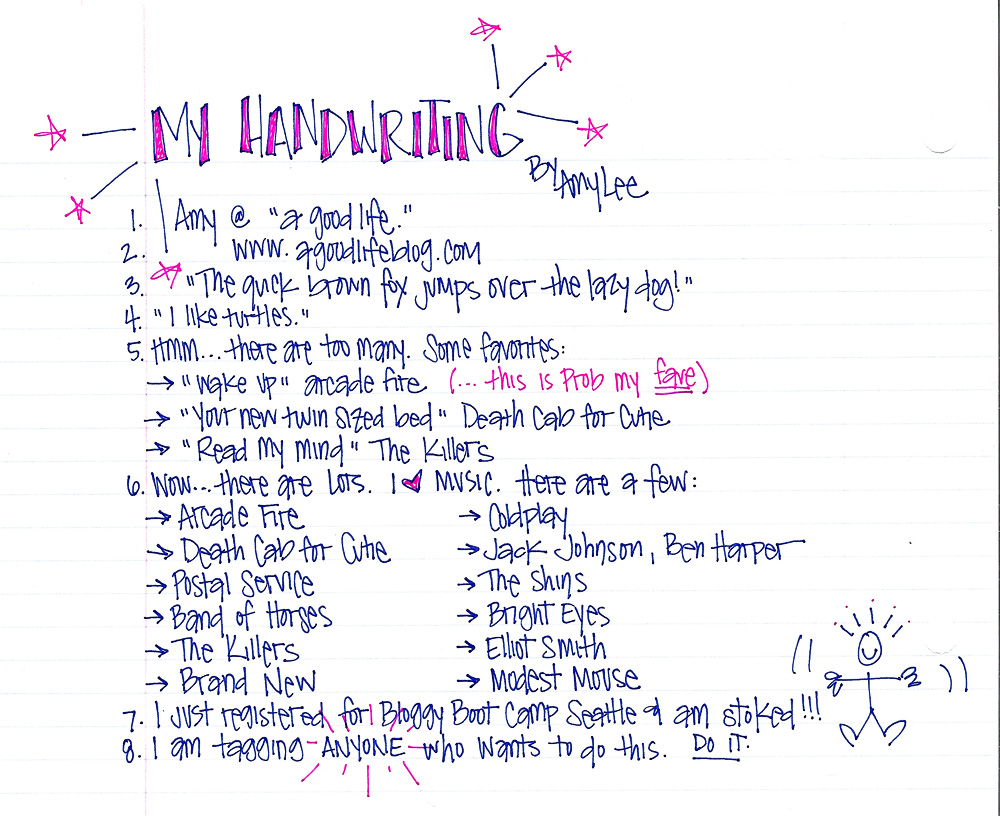 MY HANDWRITING
BY AMY LEE
1. Amy @ "a good life."
2. www.agoodlifeblog.com
3. "The quick brown fox jumps over the lazy dog!"
4. "I like turtles."
5. Hmm... there are too many. Some favorites:
→ "Wake Up" arcade fire (... this is prob my fave)
→ "Your new twin sized bed" Death Cab for Cutie
→ "Read My Mind" The Killers
6. Wow... there are lots. I ♥ music. Here are a few:
→ Arcade Fire
→ Death Cab for Cutie
→ Postal Service
→ Band of Horses
→ The Killers
→ Brand New
→ Coldplay
→ Jack Johnson, Ben Harper
→ The Shins
→ Bright Eyes
→ Elliot Smith
→ Modest Mouse
7. I just registered for Bloggy Boot Camp Seattle & am stoked!!!
8. I am tagging ANYONE who wants to do this. DO IT.